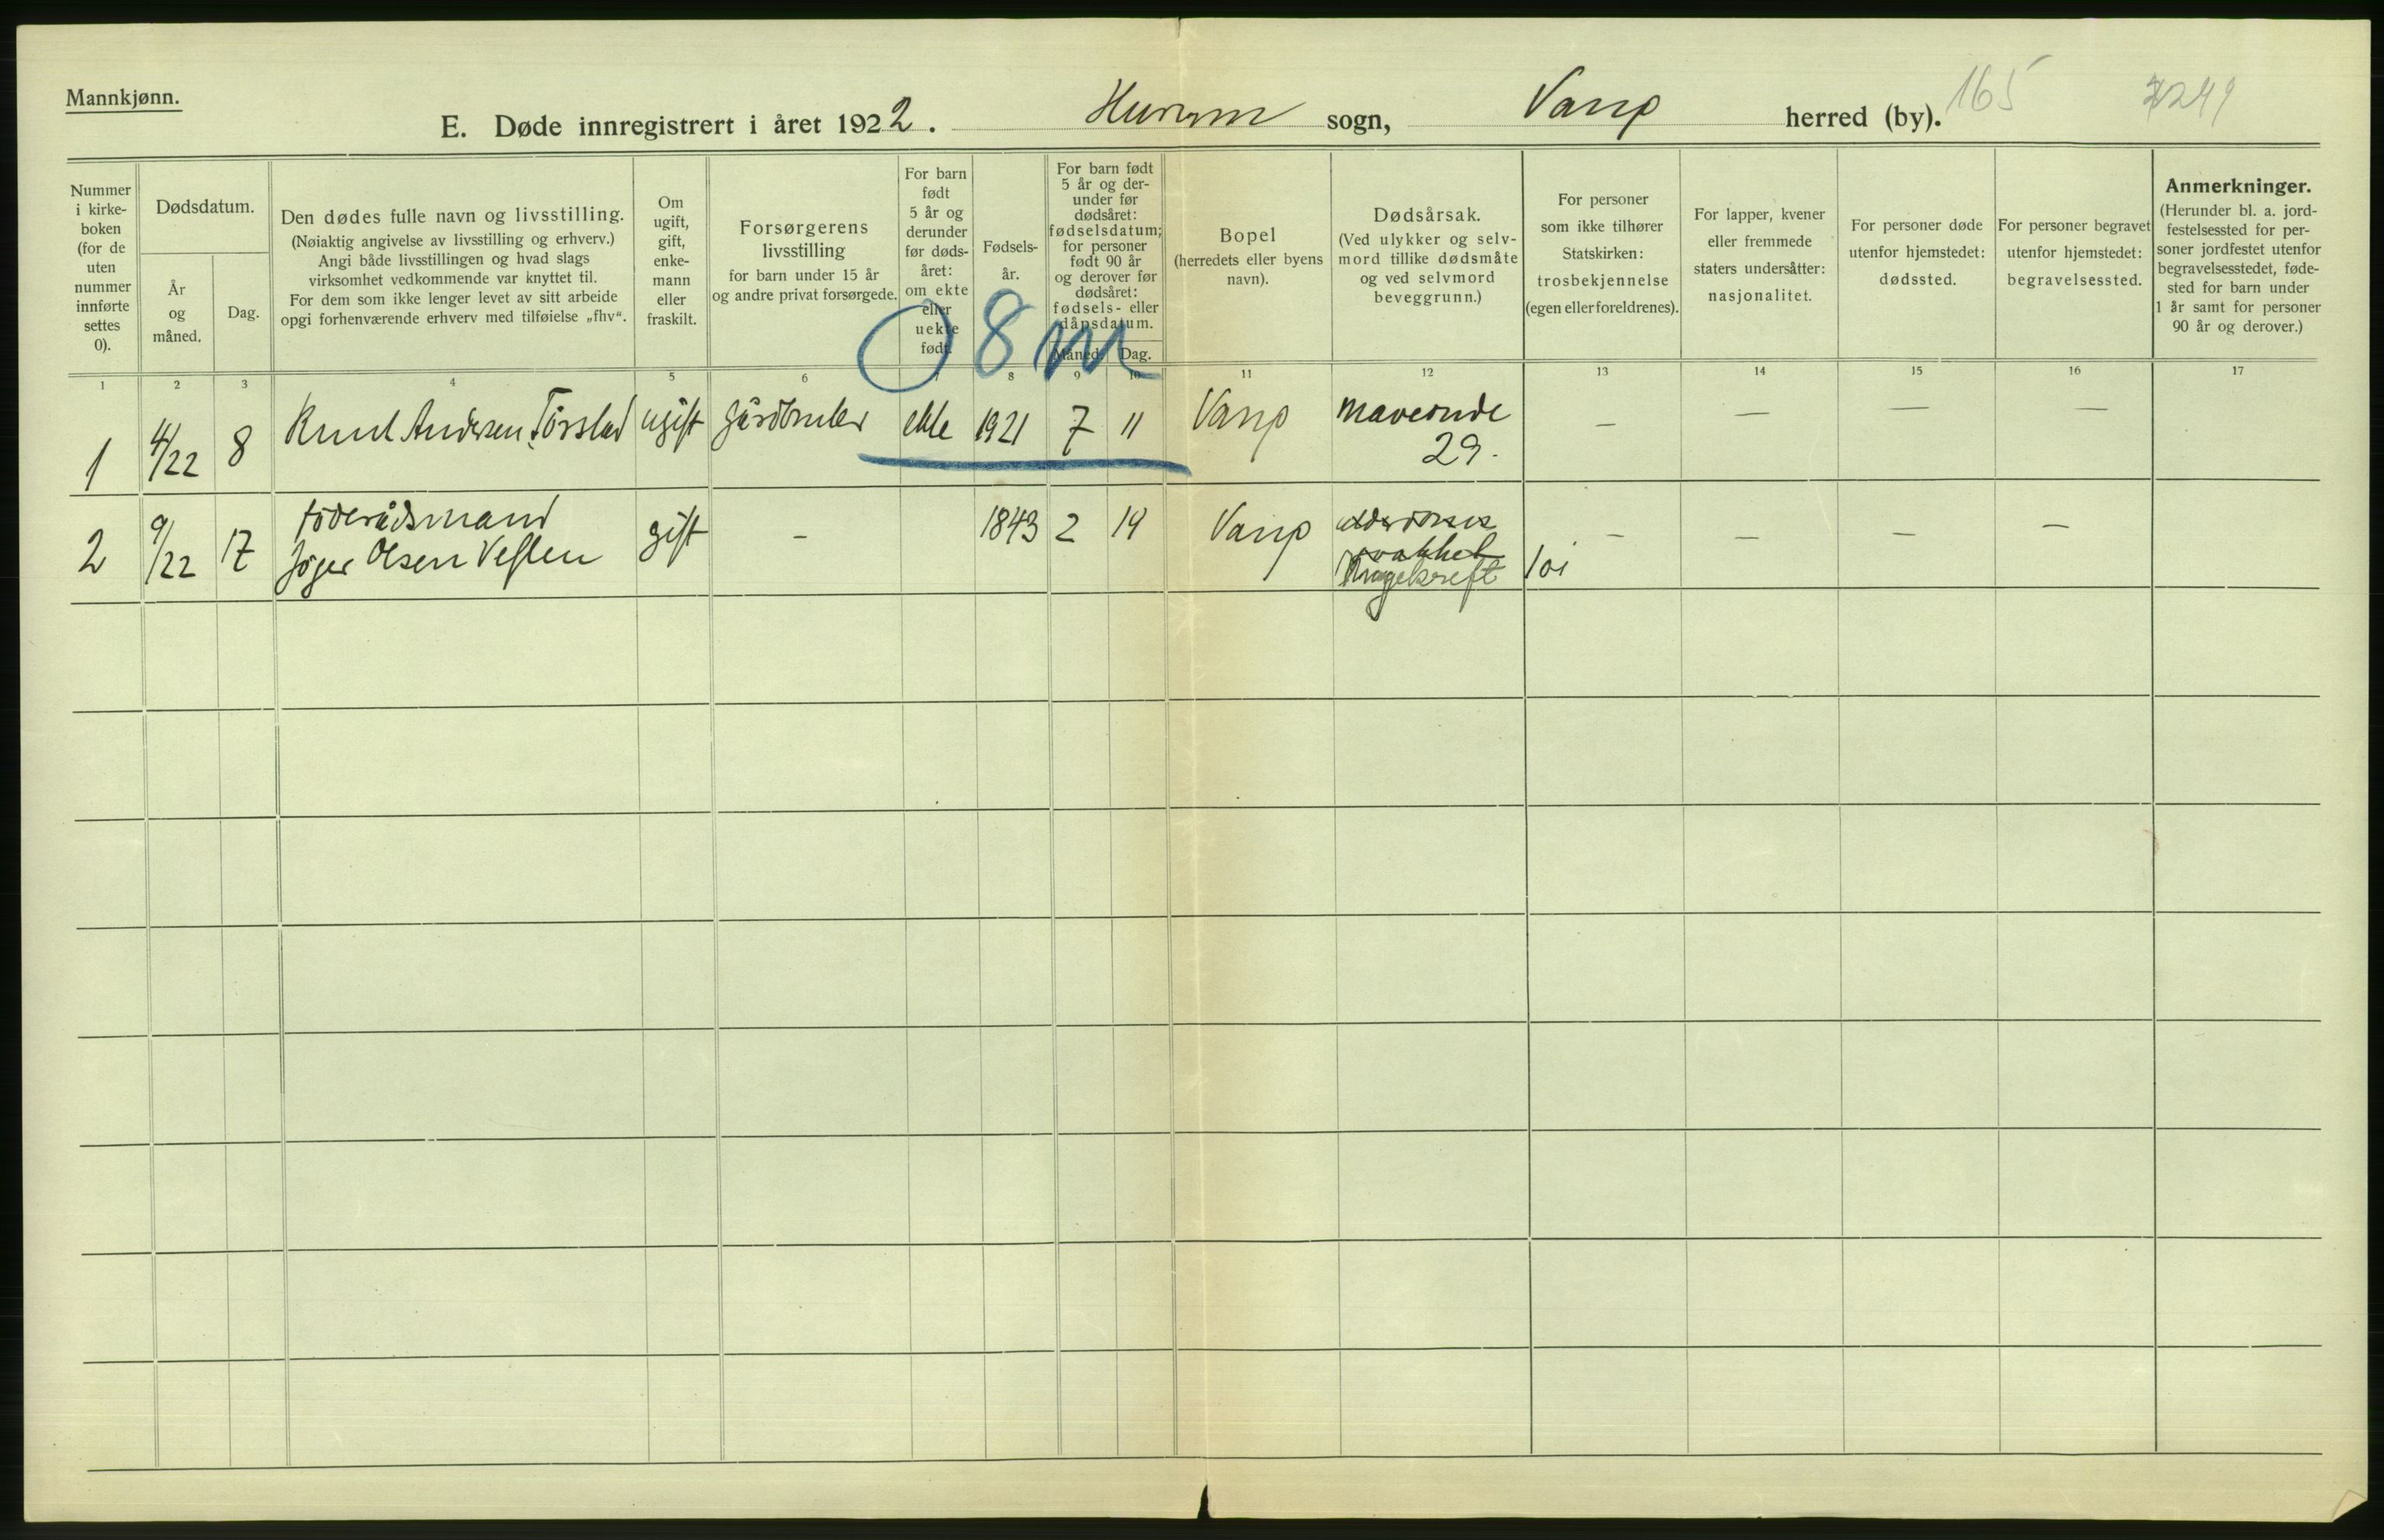 Mannkjønn.
E. Døde innregistrert i året 1922. Hurum sogn, Vang herred (by). 165
Nummer i kirke-boken (for de uten nummer innførte settes 0).
Dødsdatum.
År og måned.
Dag.
Den dødes fulle navn og livsstilling.
(Nøiaktig angivelse av livsstilling og erhverv.)
Angi både livsstillingen og hvad slags
virksomhet vedkommende var knyttet til.
For dem som ikke lenger levet av sitt arbeide
opgi forhenværende erhverv med tilføielse „fhv“.
Om
ugift,
gift,
enke-
mann
eller
fraskilt.
Forsørgerens
livsstilling
for barn under 15 år
og andre privat forsørgede.
For barn
født
5 år og
derunder
før døds-
året:
om ekte
eller
uekte
født.
Fødsels-
år.
For barn født
5 år og der-
under før
dødsåret:
fødselsdatum;
for personer
født 90 år
og derover før
dødsåret:
fødsels- eller
dåpsdatum.
Måned. Dag.
Bopel
(herredets eller byens
navn).
Dødsårsak.
(Ved ulykker og selv-
mord tillike dødsmåte
og ved selvmord
beveggrunn.)
For personer
som ikke tilhører
Statskirken:
trosbekjennelse
(egen eller foreldrenes).
For lapper, kvener
eller fremmede
staters undersåtter:
nasjonalitet.
For personer døde
utenfor hjemstedet:
dødssted.
For personer begravet
utenfor hjemstedet:
begravelsessted.
Anmerkninger.
(Herunder bl. a. jord-
festelsessted for per-
soner jordfestet utenfor
begravelsesstedet, føde-
sted for barn under
1 år samt for personer
90 år og derover.)
1 2 3 4 5 6 7 8 9 10 11 12 13 14 15 16 17
0 8 m
1 4/22 8 Knut Andersen Tørstad ugift gårdbruker ekte 1921 7 11 Vang Maveonde – – – –
29.
føderådsmand
2 9/22 17 Jøger Olsen Vesten gift – 1843 2 19 Vang alderdoms – – – –
svakhet
Magekreft 101